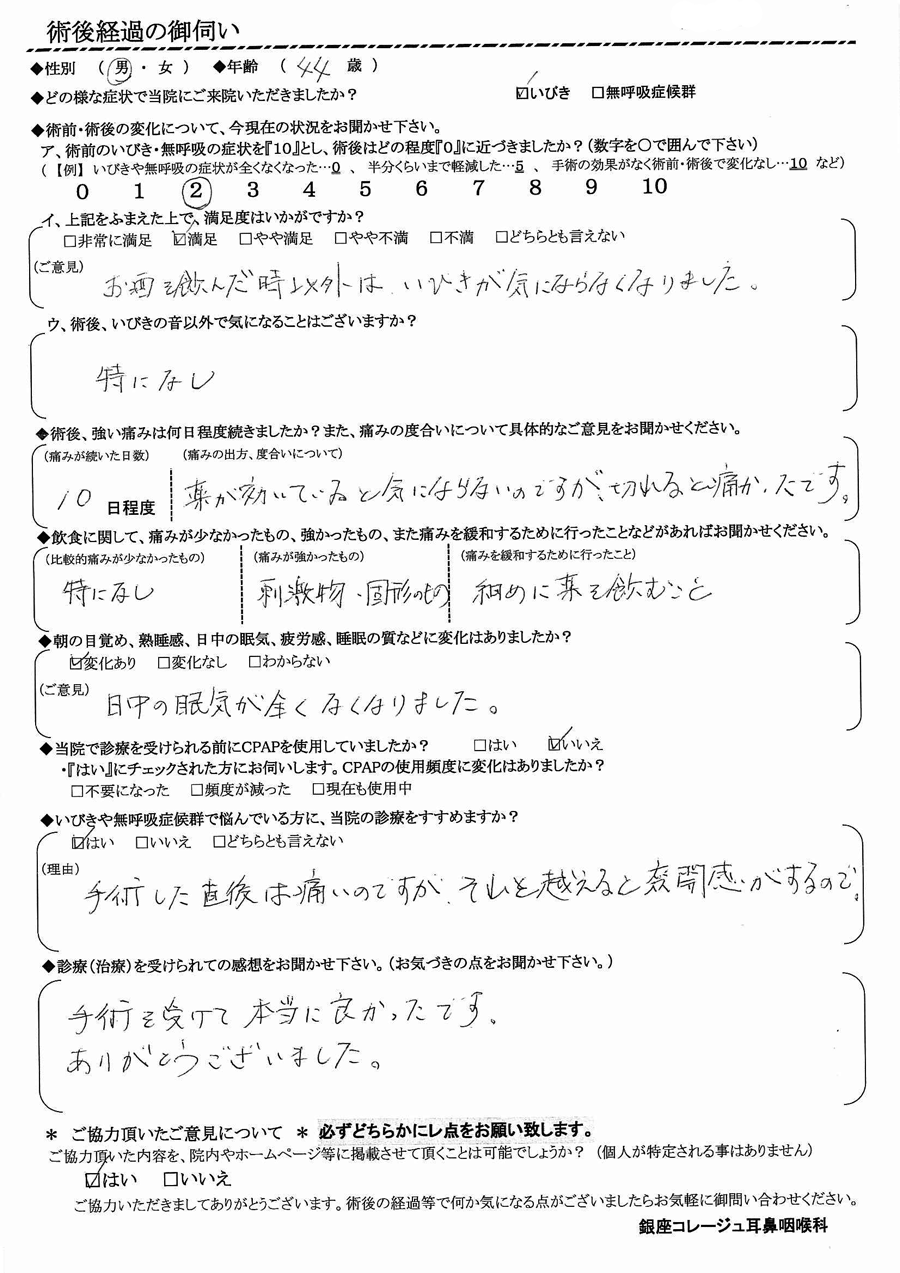 術後経過の御伺い
◆性別 （ 男 ・ 女 ） ◆年齢 （ 44 歳 ）
◆どの様な症状で当院にご来院いただきましたか？ ☑いびき □無呼吸症候群
◆術前・術後の変化について、今現在の状況をお聞かせ下さい。
ア、術前のいびき・無呼吸の症状を『10』とし、術後はどの程度『0』に近づきましたか？（数字を○で囲んで下さい）
（ 【例】 いびきや無呼吸の症状が全くなくなった…0 、 半分くらいまで軽減した…5 、 手術の効果がなく術前・術後で変化なし…10 など）
0 1 2 3 4 5 6 7 8 9 10
イ、上記をふまえた上で、満足度はいかがですか？
□非常に満足 ☑満足 □やや満足 □やや不満 □不満 □どちらとも言えない
（ご意見）
お酒を飲んだ時以外は、いびきが気にならなくなりました。
ウ、術後、いびきの音以外で気になることはございますか？
特になし
◆術後、強い痛みは何日程度続きましたか？また、痛みの度合いについて具体的なご意見をお聞かせください。
（痛みが続いた日数） （痛みの出方、度合いについて）
10 日程度 薬が効いていると気にならないのですが、切れると痛かったです。
◆飲食に関して、痛みが少なかったもの、強かったもの、また痛みを緩和するために行ったことなどがあればお聞かせください。
（比較的痛みが少なかったもの） （痛みが強かったもの） （痛みを緩和するために行ったこと）
特になし 刺激物・固形のもの 細めに薬を飲むこと
◆朝の目覚め、熟睡感、日中の眠気、疲労感、睡眠の質などに変化はありましたか？
☑変化あり □変化なし □わからない
（ご意見）
日中の眠気が全くなくなりました。
◆当院で診療を受けられる前にCPAPを使用していましたか？ □はい ☑いいえ
・『はい』にチェックされた方にお伺いします。CPAPの使用頻度に変化はありましたか？
□不要になった □頻度が減った □現在も使用中
◆いびきや無呼吸症候群で悩んでいる方に、当院の診療をすすめますか？
☑はい □いいえ □どちらとも言えない
（理由）
手術した直後は痛いのですが、それを越えると爽開感がするので。
◆診療（治療）を受けられての感想をお聞かせ下さい。（お気づきの点をお聞かせ下さい。）
手術を受けて本当に良かったです。
ありがとうございました。
＊ ご協力頂いたご意見について ＊ 必ずどちらかにレ点をお願い致します。
ご協力頂いた内容を、院内やホームページ等に掲載させて頂くことは可能でしょうか？ （個人が特定される事はありません）
☑はい □いいえ
ご協力いただきましてありがとうございます。術後の経過等で何か気になる点がございましたらお気軽に御問い合わせください。
銀座コレージュ耳鼻咽喉科